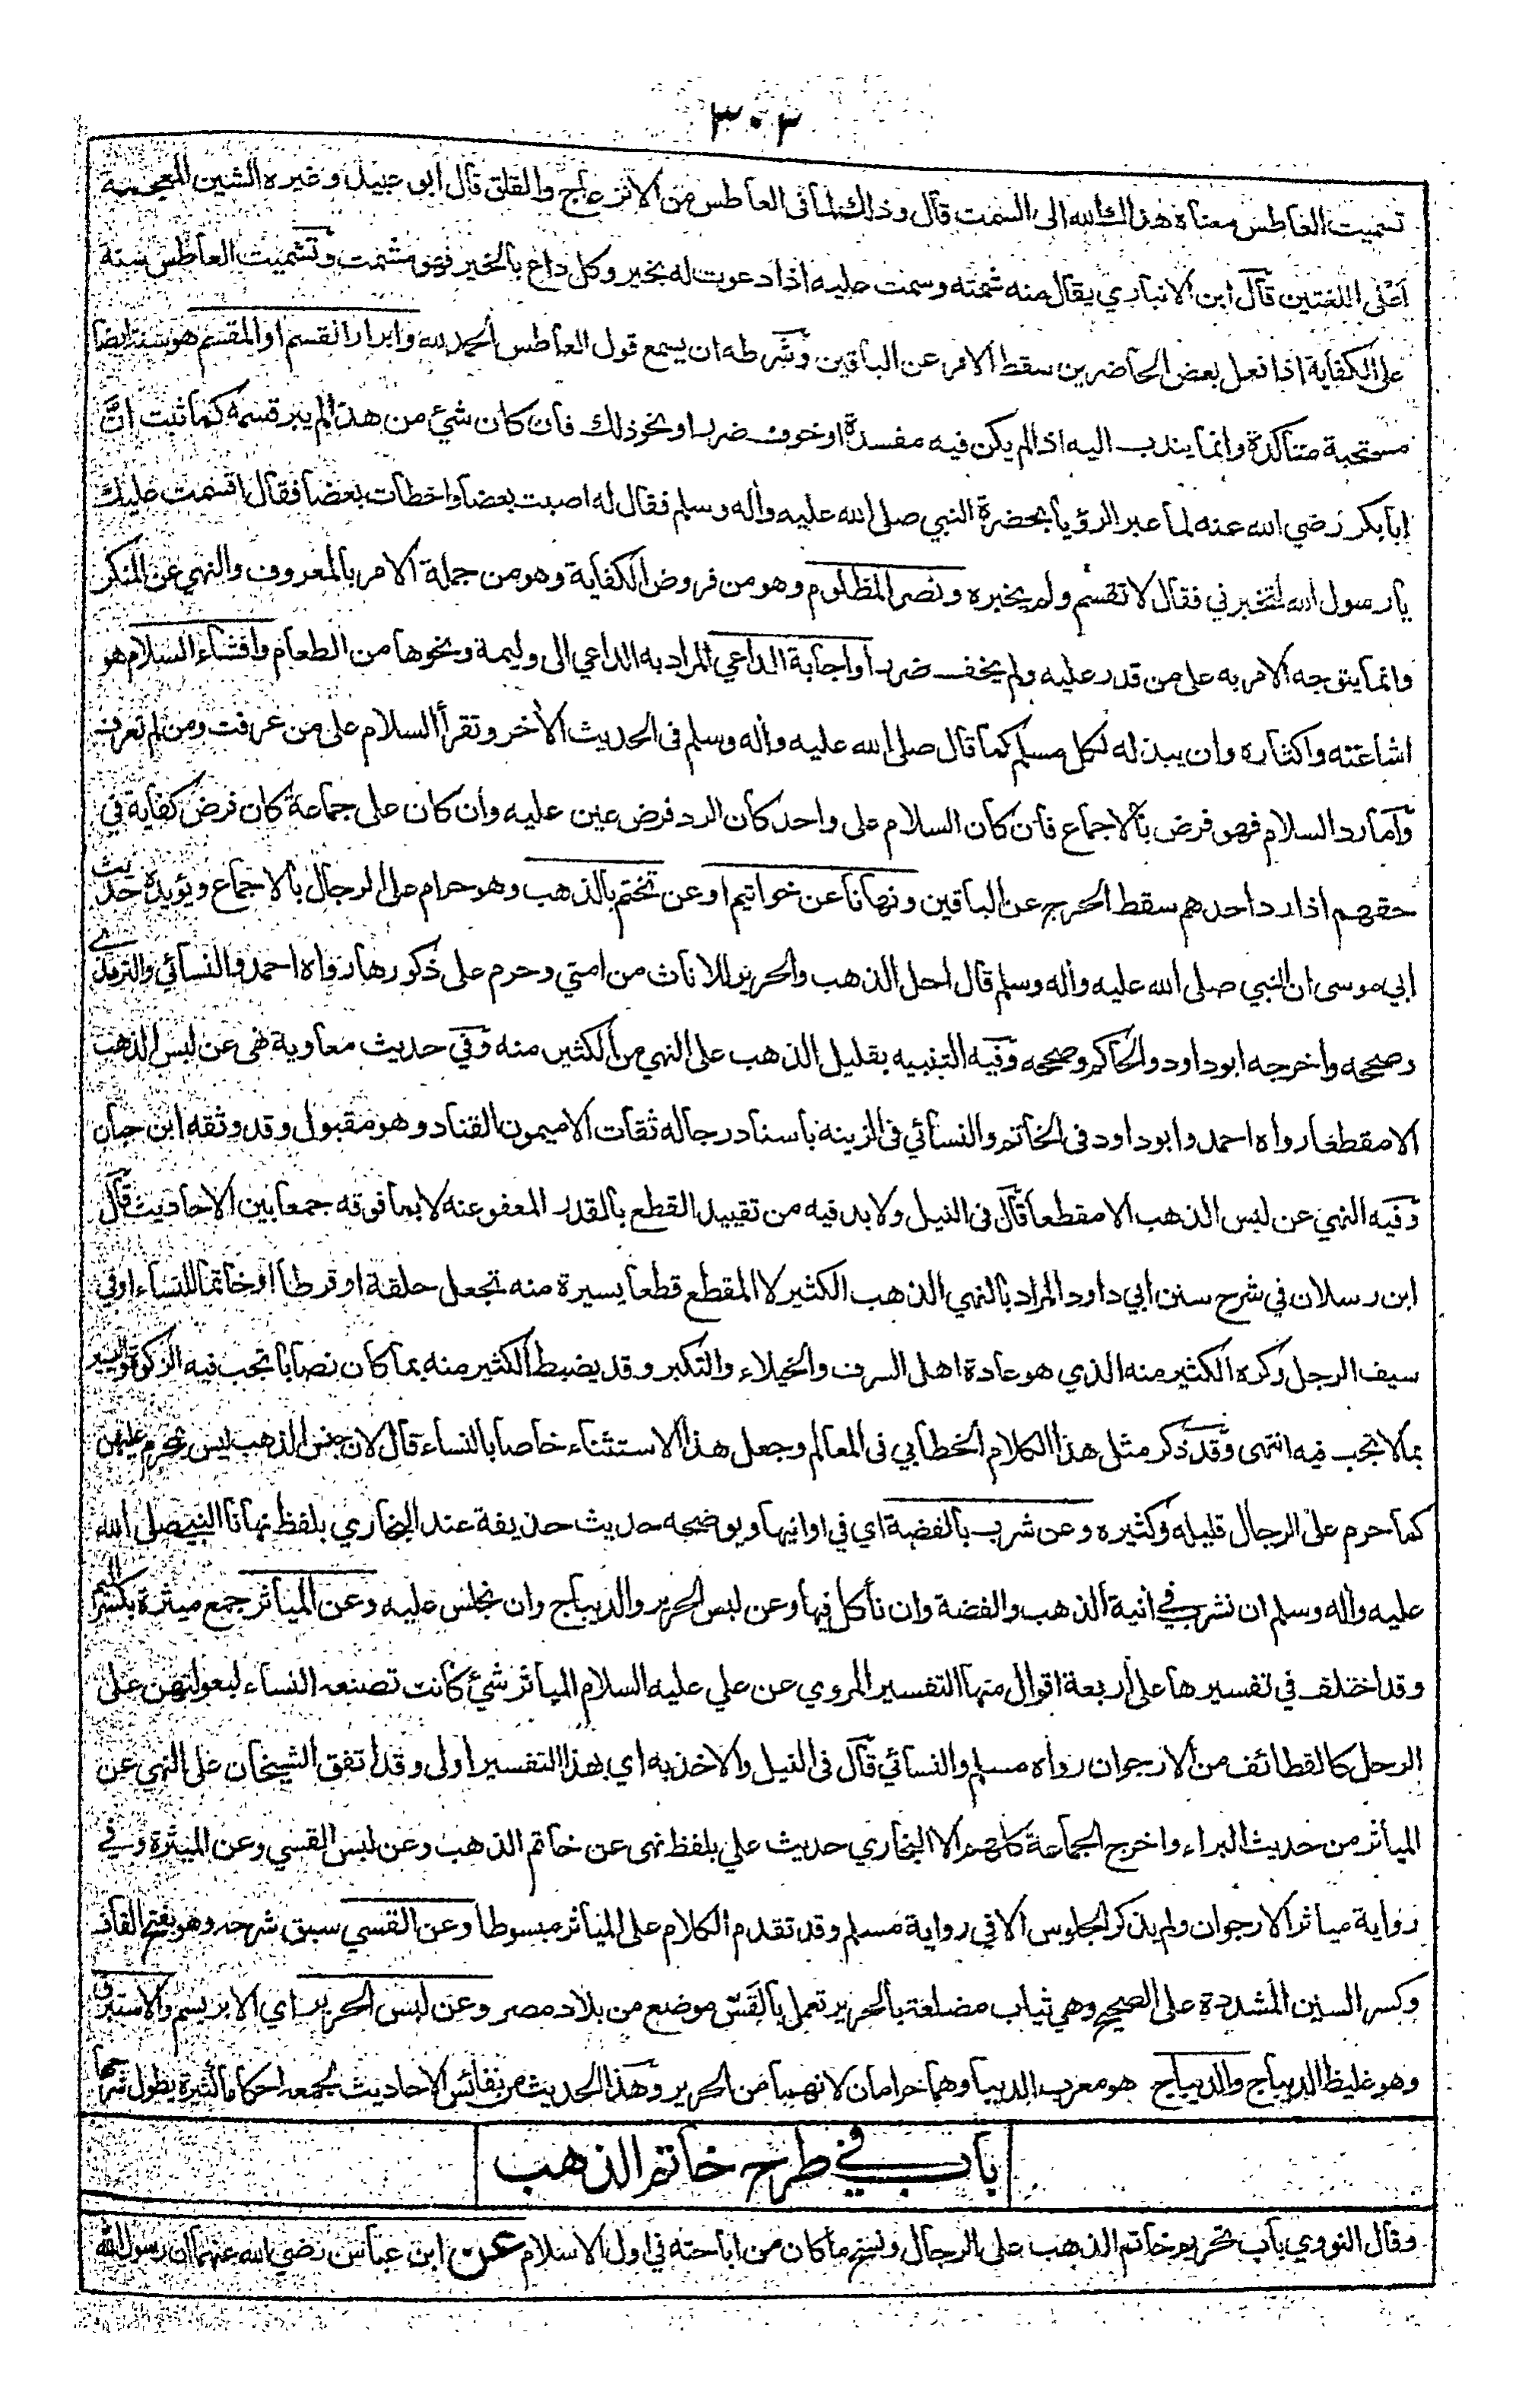 ٣٠٣
تسميت العاطس معناه هداك الله الى السمت قال وذلك لما فى العاطس من الانزعاج والقلق قال ابو عبيد وغيره الشين المعجمة
اعلى اللغتين قال ابن الانباري يقال منه شمته وسمت عليه اذا دعوت له بخير وكل داع بالخير فهو مشمت وتشميت العاطس سنة
على الكفاية اذا فعل بعض الحاضرين سقط الامر عن الباقين وشرطه ان يسمع قول العاطس الحمد لله وابرار القسم او المقسم هو سنة ايضا
مستحبة متاكدة وانما يندب اليه اذا لم يكن فيه مفسدة او خوف ضرر او نحو ذلك فان كان شئ من هذا لم يبر قسمه كما ثبت انّ
ابا بكر رضي الله عنه لما عبر الرؤيا بحضرة النبي صلى الله عليه واله وسلم فقال له اصبت بعضا واخطات بعضا فقال اقسمت عليك
يا رسول الله لتخبرني فقال لا تقسم ولم يخبره ونصر المظلوم وهو من فروض الكفاية وهو من جملة الامر بالمعروف والنهي عن المنكر
وانما يتوجه الامر به على من قدر عليه ولم يخف ضررا واجابة الداعي المراد به الداعي الى وليمة ونحوها من الطعام وافشاء السلام هو
اشاعته واكثاره وان يبذله لكل مسلم كما قال صلى الله عليه واله وسلم فى الحديث الأخر وتقرأ السلام على من عرفت ومن لم تعرف
وآما رد السلام فهو فرض بالاجماع فان كان السلام على واحد كان الرد فرض عين عليه وان كان على جماعة كان فرض كفاية في
حقهم اذا رد احدهم سقط الحرج عن الباقين ونهانا عن خواتيم او عن تختم بالذهب وهو حرام على الرجال بالاجماع ويؤيده حديث
ابي موسى ان النبي صلى الله عليه واله وسلم قال احل الذهب والحرير للاناث من امتي وحرم على ذكورها رواه احمد والنسائي والترمذي
وصححه واخرجه ابو داود والحاكم وصححه وفيه التنبيه بقليل الذهب على النهي من الكثير منه وفي حديث معاوية نهى عن لبس الذهب
الا مقطعا رواه احمد وابو داود فى الخاتم والنسائي فى الزينة باسناد رجاله ثقات الا ميمون القناد وهو مقبول وقد وثقه ابن حبان
وفيه النهي عن لبس الذهب الا مقطعا قال فى النيل ولا بد فيه من تقييد القطع بالقدر المعفو عنه لا بما فوقه جمعا بين الاحاديث قال
ابن رسلان في شرح سنن ابي داود المراد بالنهي الذهب الكثير لا المقطع قطعا يسيرة منه تجعل حلقة او قرطا او خاتما للنساء او في
سيف الرجل وكره الكثير منه الذي هو عادة اهل السرف والخيلاء والتكبر وقد يضبط الكثير منه بما كان نصابا تجب فيه الزكوة واليسير
بما لا تجب فيه انتهى وقد ذكر مثل هذا الكلام الخطابي فى المعالم وجعل هذا الاستثناء خاصا بالنساء قال لان جنس الذهب ليس بمحرم عليهن
كما حرم على الرجال قليله وكثيره وعن شرب بالفضة اي في اوانيها ويوضحه حديث حذيفة عند البخاري بلفظ نهانا النبي صلى الله
عليه واله وسلم ان نشرب في انية الذهب والفضة وان نأكل فيها وعن لبس الحرير والديباج وان نجلس عليه وعن المياثر جمع ميثرة بكسر الميم
وقد اختلف في تفسيرها على اربعة اقوال منها التفسير المروي عن علي عليه السلام المياثر شئ كانت تصنعه النساء لبعولتهن على
الرحل كالقطائف من الارجوان رواه مسلم والنسائي قال فى النيل والاخذ به اي بهذا التفسير اولى وقد اتفق الشيخان على النهي عن
المياثر من حديث البراء واخرج الجماعة كلهم الا البخاري حديث علي بلفظ نهى عن خاتم الذهب وعن لبس القسي وعن الميثرة وفي
رواية مياثر الارجوان ولم يذكر الجلوس الا في رواية مسلم وقد تقدم الكلام على المياثر مبسوطا وعن القسي سبق شرحه وهو بفتح القاف
وكسر السين المشددة على الصحيح وهي ثياب مضلعة بالحرير تعمل بالقَسّ موضع من بلاد مصر وعن لبس الحرير اي الابريسم والاستبرق
وهو غليظ الديباج والديباج هو معرب الديبا وهما حرامان لانهما من الحرير وهذا الحديث من نفائس الاحاديث لجمعه احكاما كثيرة يطول شرحها
باب في طرح خاتم الذهب
وقال النووي باب تحريم خاتم الذهب على الرجال ونسخ ما كان من اباحته في اول الاسلام عن ابن عباس رضي الله عنهما ان رسول الله